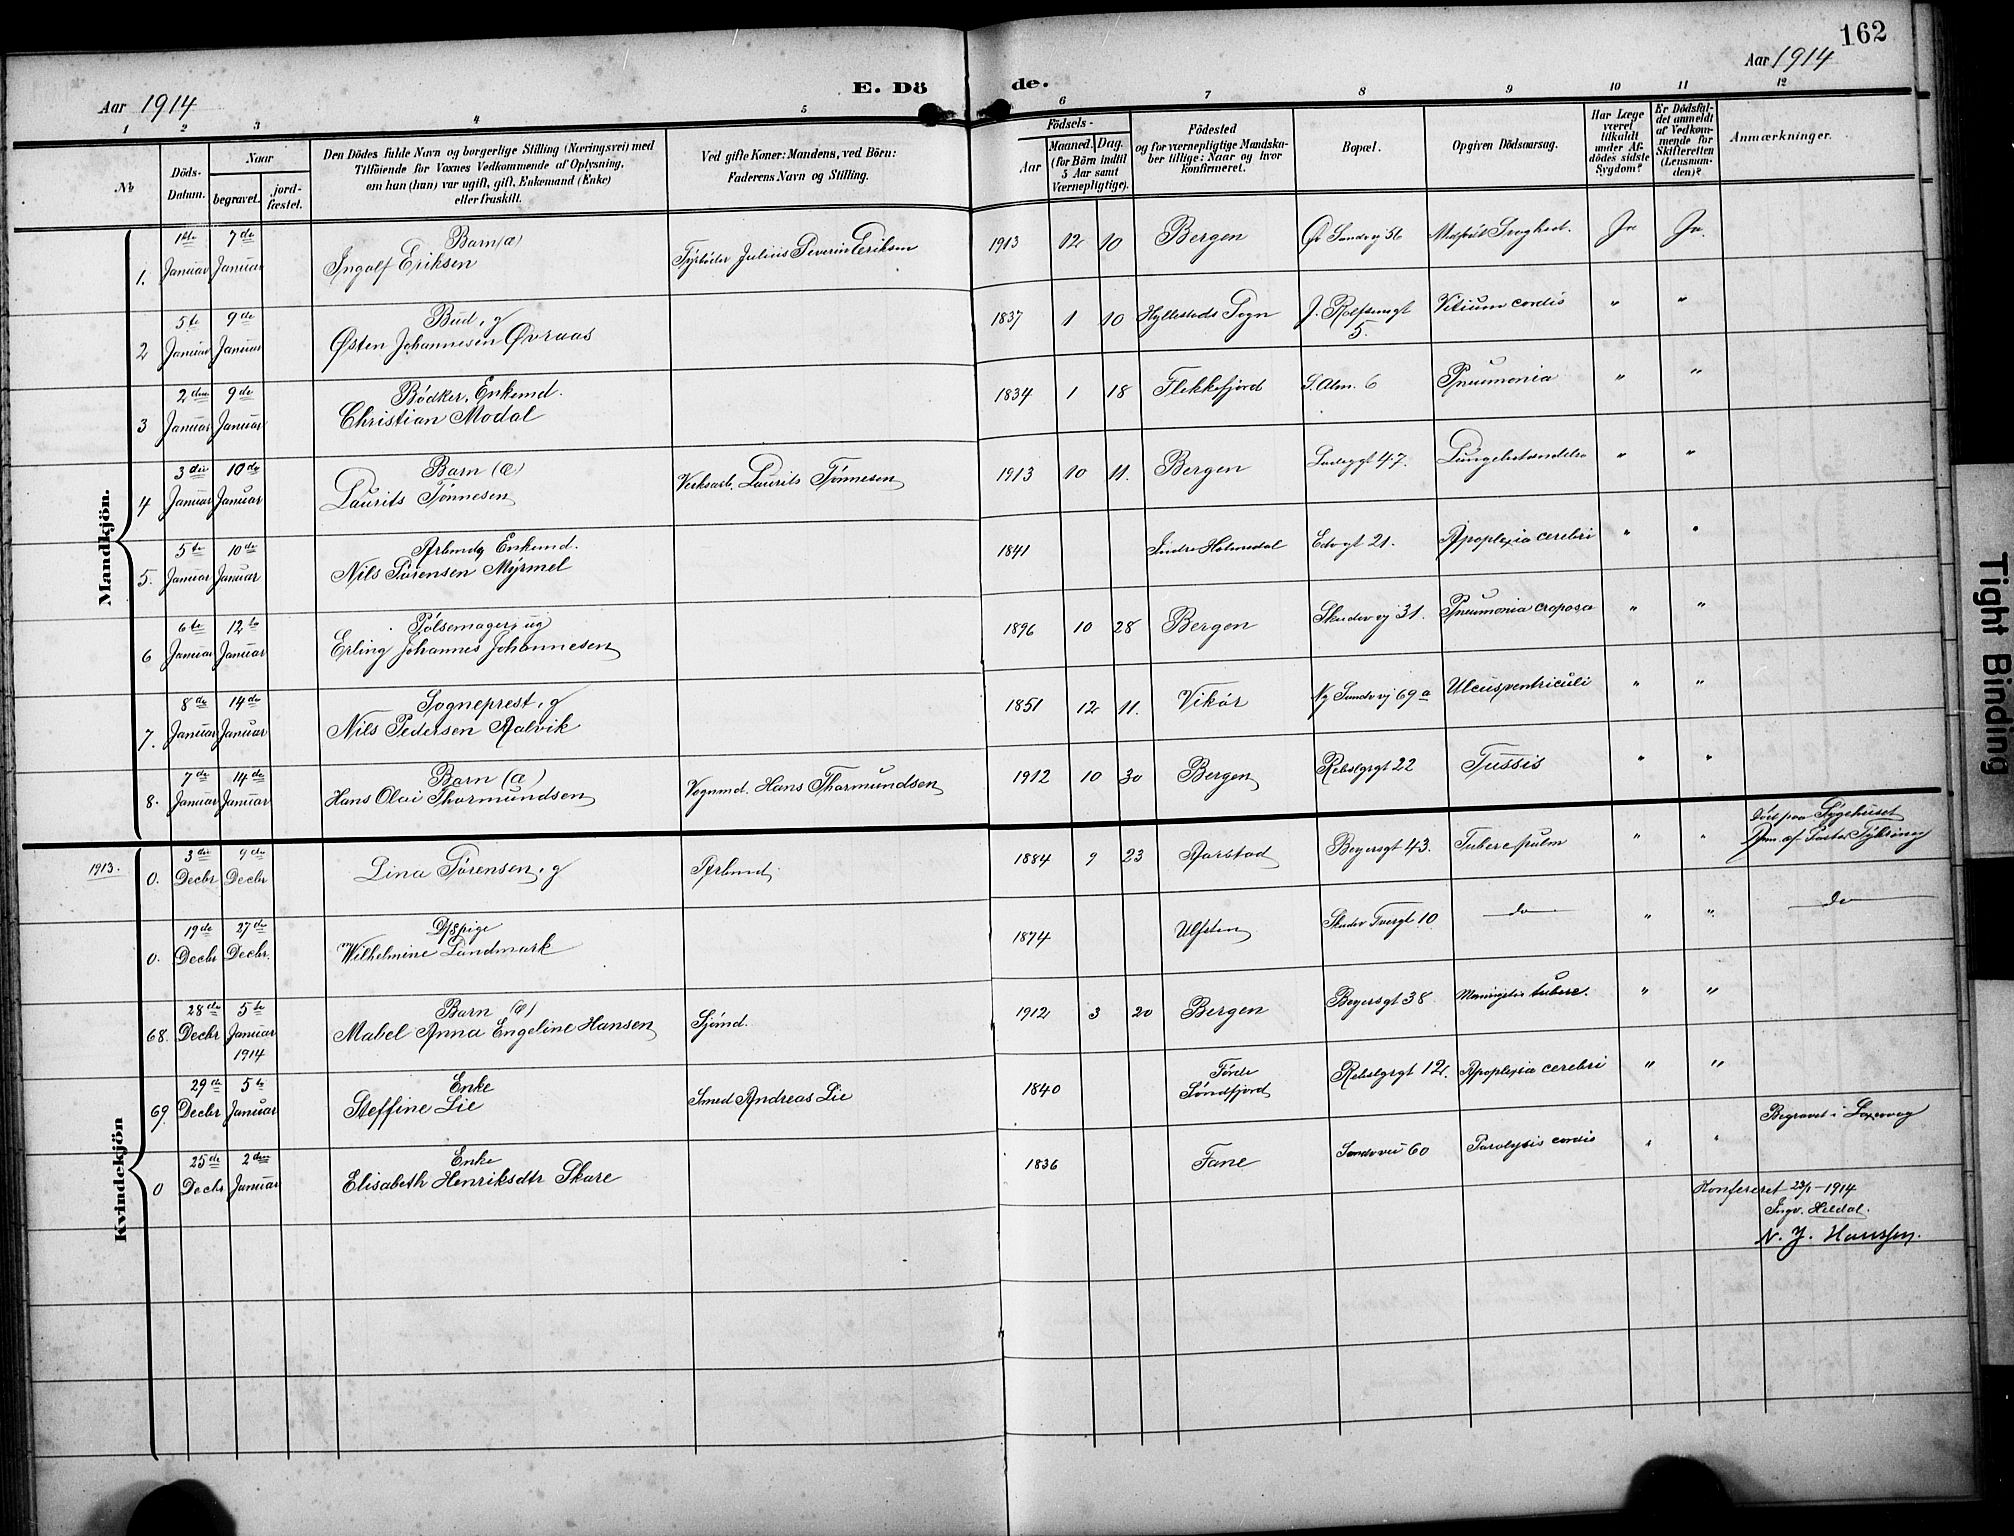 162
Aar 1914
E. Dö de.
Aar 1914
1 2 3 4 5 6 7 8 9 10 11 12
№
Döds-Datum.
Naar
begravet.
jord-fæstet.
Den Dödes fulde Navn og borgerlige Stilling (Næringsvei) med
Tilföiende for Voxnes Vedkommende af Oplysning,
om hun (han) var ugift, gift, Enkemand (Enke)
eller fraskilt.
Ved gifte Koner: Mandens, ved Börn:
Faderens Navn og Stilling.
Födsels-
Aar
Maaned. Dag.
(for Börn indtil
5 Aar samt
Værnepligtige).
Födested
og for værnepligtige Mandskaber tillige: Naar og hvor
konfirmeret.
Bopæl.
Opgiven Dödsaarsag.
Har Læge
været
tilkaldt
under Afdödes sidste
Sygdom?
Er Dödsfaldet anmeldt
af Vedkommende for
Skifteretten
(Lensmanden)?
Anmærkninger.
Mandkjön.
1. 1ste Januar 7de Januar Barn (æ) Ingolf Eriksen Fyrböder Julius Severin Eriksen 1913 12 10 Bergen Øv Sandvej 56 Medfödt Svaghed. Ja Ja.
2 5te Januar 9de Januar Bud, g Østen Johannesen Øvraas 1837 1 10 Hyllestads Sogn J. Rolfsensgt 5. Vitium cordis " "
3 2den Januar 9de Januar Bødker, Enkemd. Christian Modal 1834 1 18 Flekkefjord S. Alm. 6 Pneumonia " "
4 3die Januar 10de Januar Barn (æ) Laurits Tønnesen Verksarb. Laurits Tønnesen 1913 10 11. Bergen Ladeggt 47. Lungebetændelse " "
5. 5te Januar 10de Januar Arbmd, Enkemd. Nils Sørensen Myrmel 1841 Indre Holmedal Edvgt 21. Apoplexia cerebri " "
6 6te Januar 12te Januar Pølsemager, ug Erling Johannes Johannesen 1896 10 28 Bergen Skudevvj 31. Pneumonia croposa " "
7. 8de Januar 14de Januar Sogneprest, g Nils Pedersen Aalvik 1851 12 11. Vikør Ny Sandvvj 69a Ulcus ventriculi " "
8. 7de Januar 14de Januar Barn (æ) Hans Olai Thormundsen Vognmd. Hans Thormundsen 1912 10 30 Bergen Rebslgrgt 22 Tussis " "
Kvindekjön
1913. 0. 3die Decbr 9de Decbr Lina Sørensen, g Arbmd, 1884 9 23 Aarstad Beyersgt 43. Tuberc pulm " " død paa Sygehuset
0. 19de Decbr 27de Decbr. Pige Wilhelmine Landmark 1874 Ulfsten Skudev Tvergt 10 do " " do
68. 28de Decbr 5te Januar 1914 Barn (æ) Mabel Anna Engeline Hansen Sjømd. 1912 3 20 Bergen Beyersgt 38 Meningitis tuberc. " "
69. 29de Decbr 5te Januar Enke Steffine Lie Smed Andreas Lie 1840 Førde Søndfjord Rebslgrgt 12. Apoplexia cerebri " "
0 25de Decbr 2den Januar Enke Elisabeth Henriksdtr Skare 1836 Fane Sandvvei 60 Paralysis cordis " " Begravet i Laxevaag
Konfereret 23/1-1914
Ingv. Hildal.
N. J. Hanssen.
Tight Binding